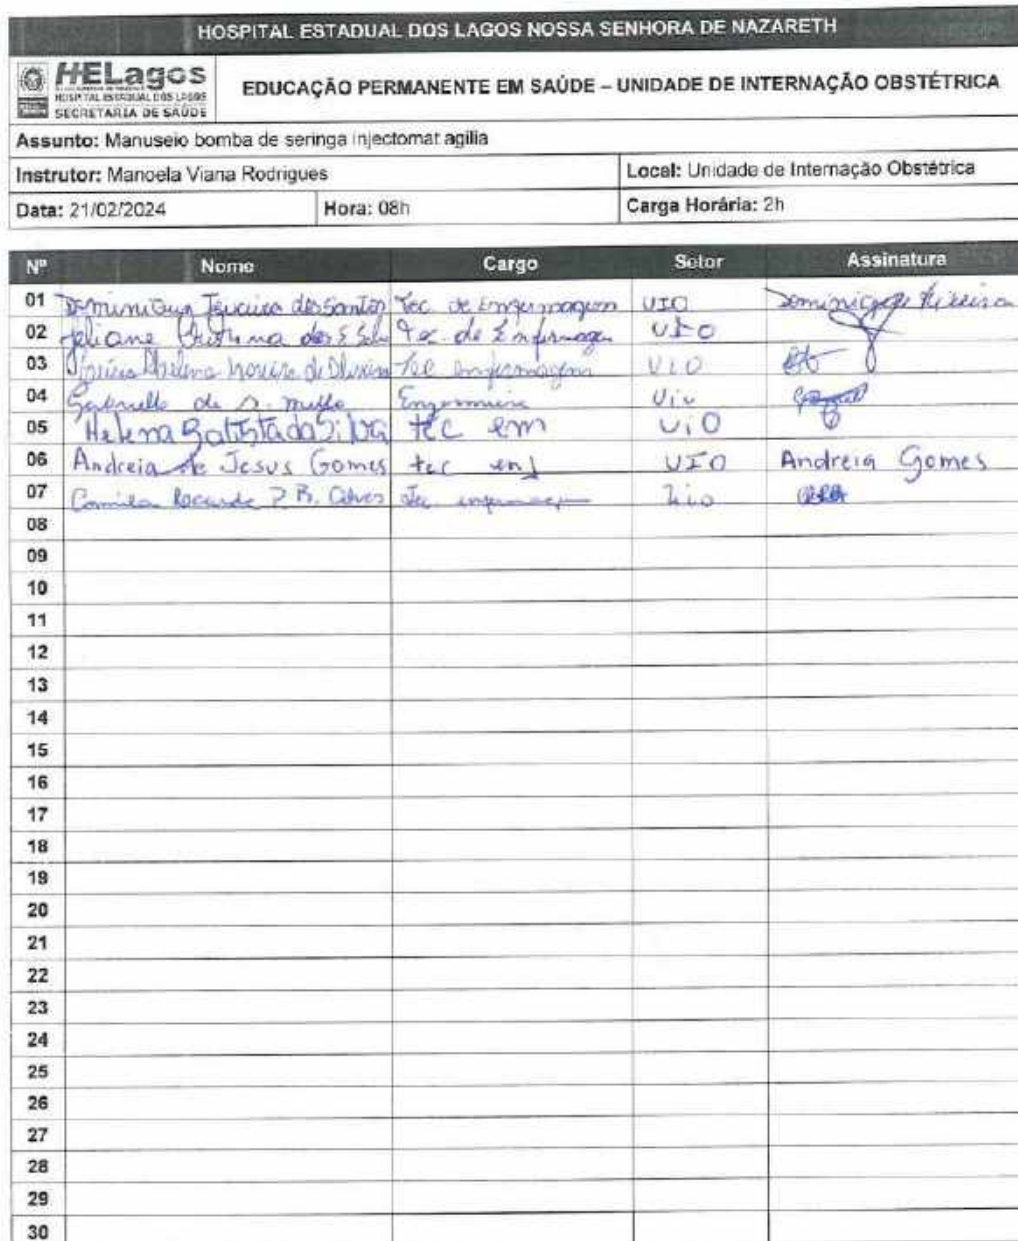 HOSPITAL ESTADUAL DOS LAGOS NOSSA SENHORA DE NAZARETH
HELagos
HOSPITAL ESTADUAL DOS LAGOS
SECRETARIA DE SAÚDE
EDUCAÇÃO PERMANENTE EM SAÚDE – UNIDADE DE INTERNAÇÃO OBSTÉTRICA
Assunto: Manuseio bomba de seringa injectomat agilia
Instrutor: Manoela Viana Rodrigues Local: Unidade de Internação Obstétrica
Data: 21/02/2024 Hora: 08h Carga Horária: 2h
Nº Nome Cargo Setor Assinatura
01 dos Santos Tec de Enfermagem UIO
02 Cristina dos S Tec. de Enfermagem UIO
03 Helena de Oliveira Tec enfermagem UIO
04 de Enfermeira Uio
05 Helena Batista da Silva tec em UiO
06 Andreia de Jesus Gomes tec enf UIO Andreia Gomes
07 Camila Alves Tec Uio
08
09
10
11
12
13
14
15
16
17
18
19
20
21
22
23
24
25
26
27
28
29
30